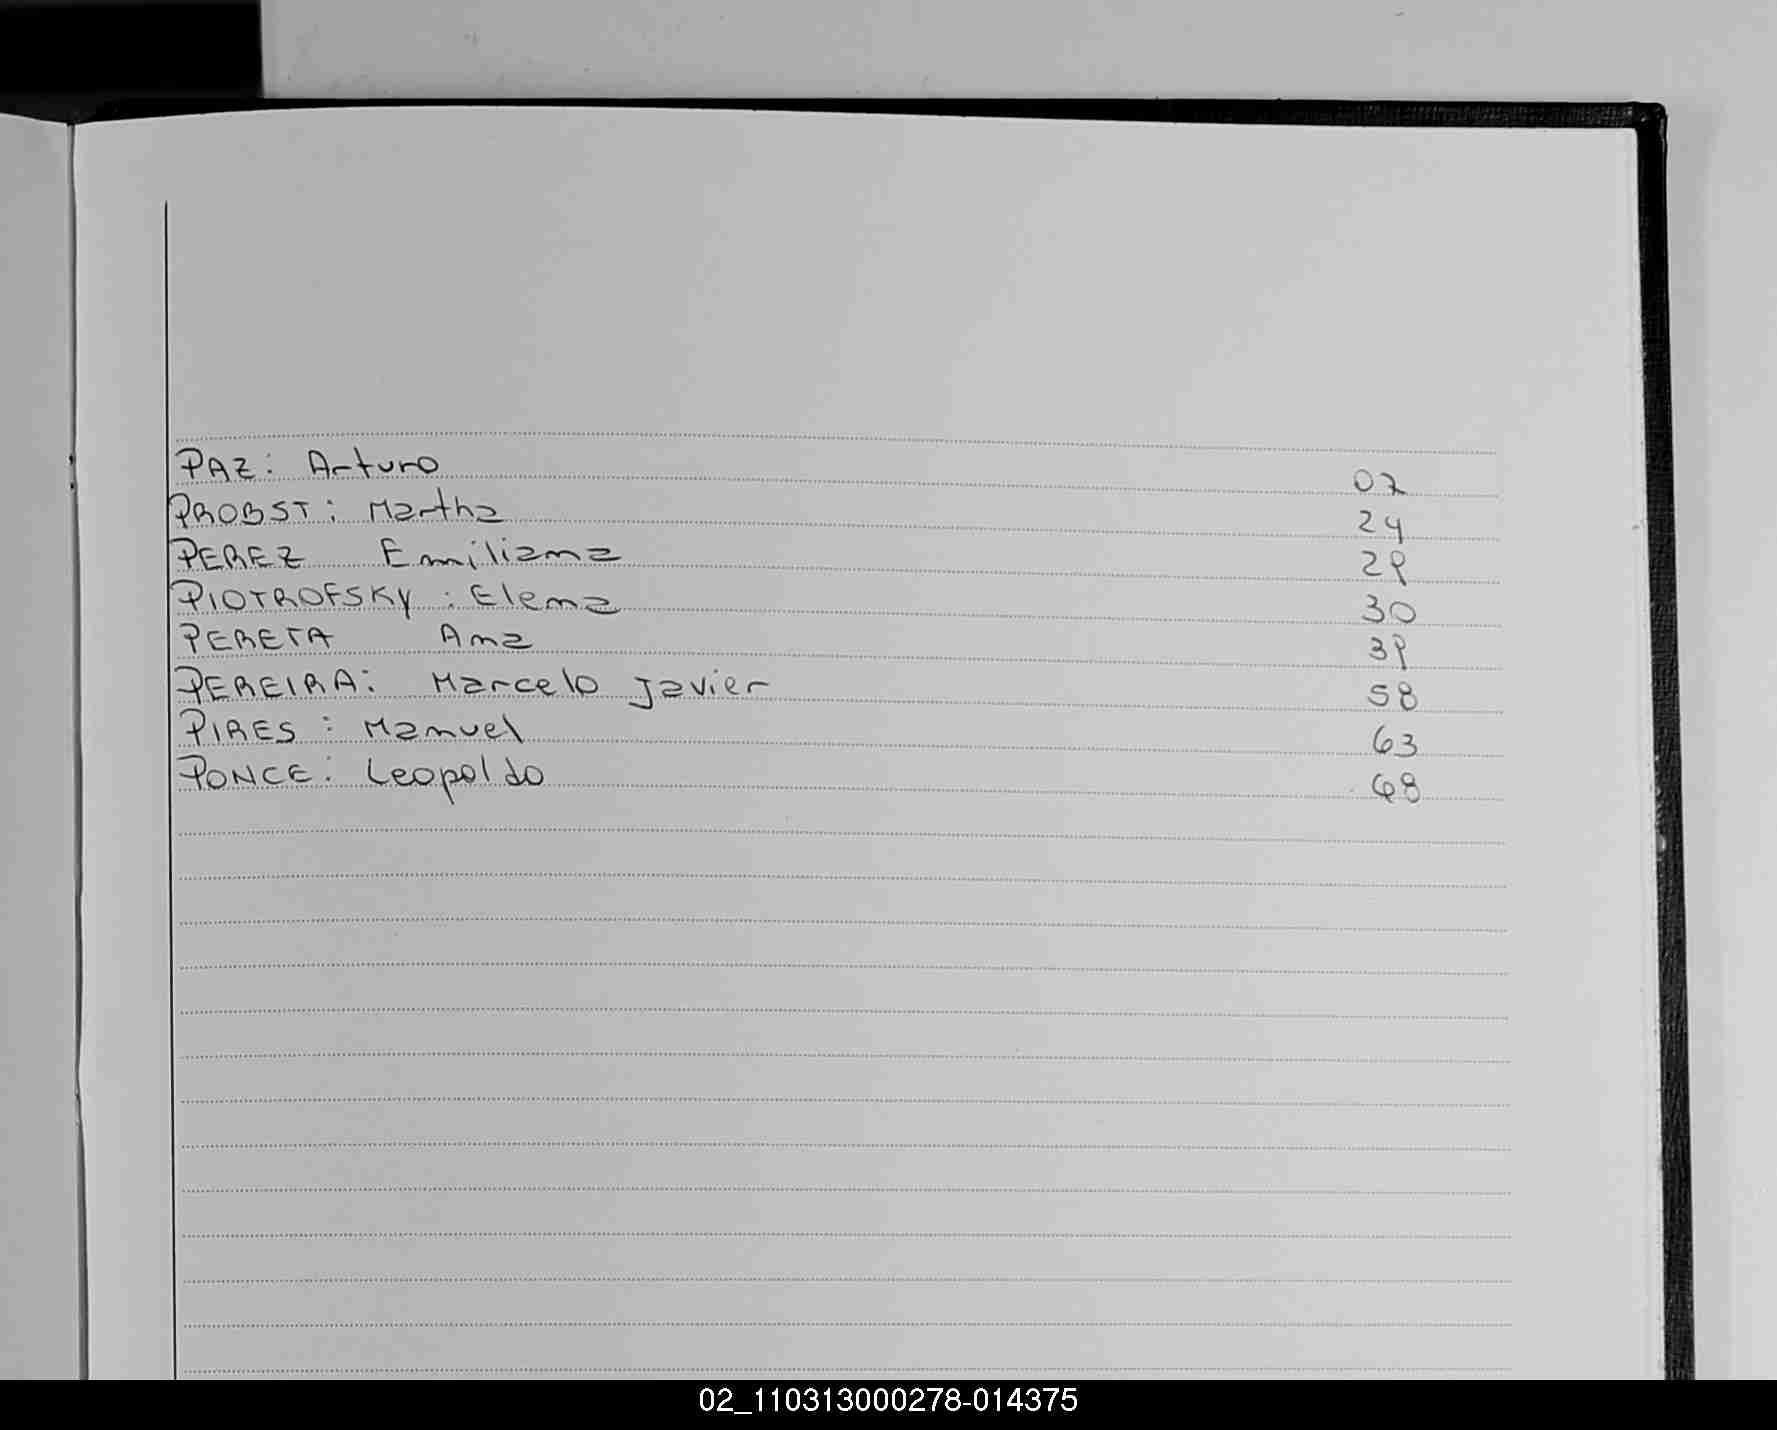 PAZ: Arturo 07
PROBST: Martha 24
PEREZ Emiliana 29
PIOTROFSKY: Elena 30
PERETA Ana 39
PEREIRA: Marcelo Javier 58
PIRES: Manuel 63
PONCE: Leopoldo 68
02_110313000278-014375